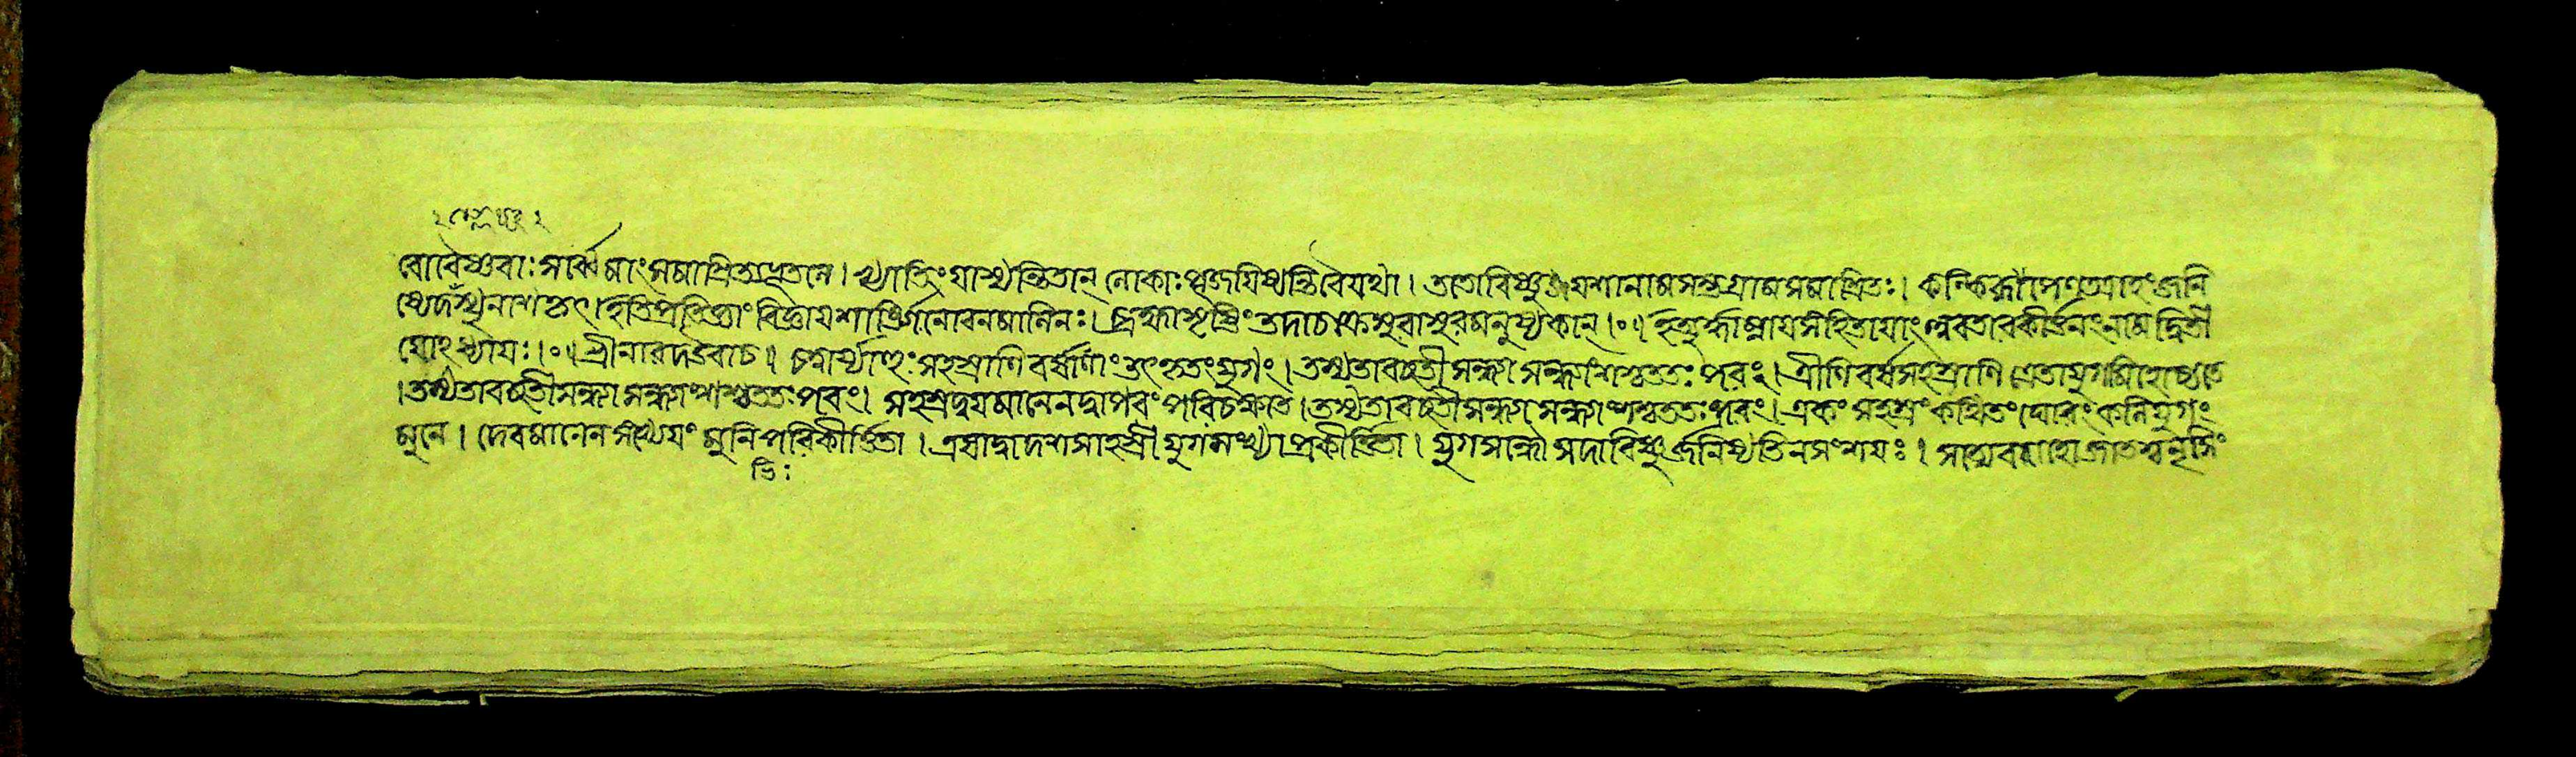 বো বৈষ্ণবাঃ সর্ব্বেষাং সমাশ্রিতা ব্রতান্ন । খ্যাতিং যাস্যন্তি তান্ লোকাঃ পূজয়িষ্যন্তি বৈ যথা । ততো বিষ্ণুযশানাম সম্ভলগ্রাম সমাশ্রিতঃ । কল্কিরূপোপি ততশ্চাহং জনি
ষ্যে দস্যুনাশকৃৎ । ইতি প্রতিজ্ঞাং বিজ্ঞায় মানিনঃ । ব্রহ্মা সৃষ্টিং তদা চক্রে সুরাসুরমনুষ্যকান্ ।০। ইত্যূর্দ্ধাম্নায়সংহিতায়াং অবতারকীর্ত্তনং নাম দ্বিতী
য়োঽধ্যায়ঃ ।০। শ্রীনারদ উবাচ । চত্বার্য্যাহুঃ সহস্রাণি বর্ষাণাং তৎকৃতং যুগং । তস্য তাবচ্ছতী সন্ধ্যা সন্ধ্যাংশশ্চ ততঃ পরং । ত্রীণি বর্ষসহস্রাণি ত্রেতাযুগমিহোচ্যতে
। তস্য তাবচ্ছতী সন্ধ্যা সন্ধ্যাংশশ্চ ততঃ পরং । সহস্রদ্বয়মানেন দ্বাপরং পরিচক্ষতে । তস্য তাবচ্ছতী সন্ধ্যা সন্ধ্যাংশশ্চ ততঃ পরং । একং সহস্রং কথিতং ঘোরং কলিযুগং
মুনে । দেবমানেন সংখ্যেয়ং মুনি পরিকীর্ত্তিতা । এষা দ্বাদশসাহস্রী যুগসংখ্যা প্রকীর্ত্তিতা । যুগসন্ধৌ সদা বিষ্ণুর্জনিষ্যতি ন সংশয়ঃ । জাতশ্চ নৃসিং
ভিঃ